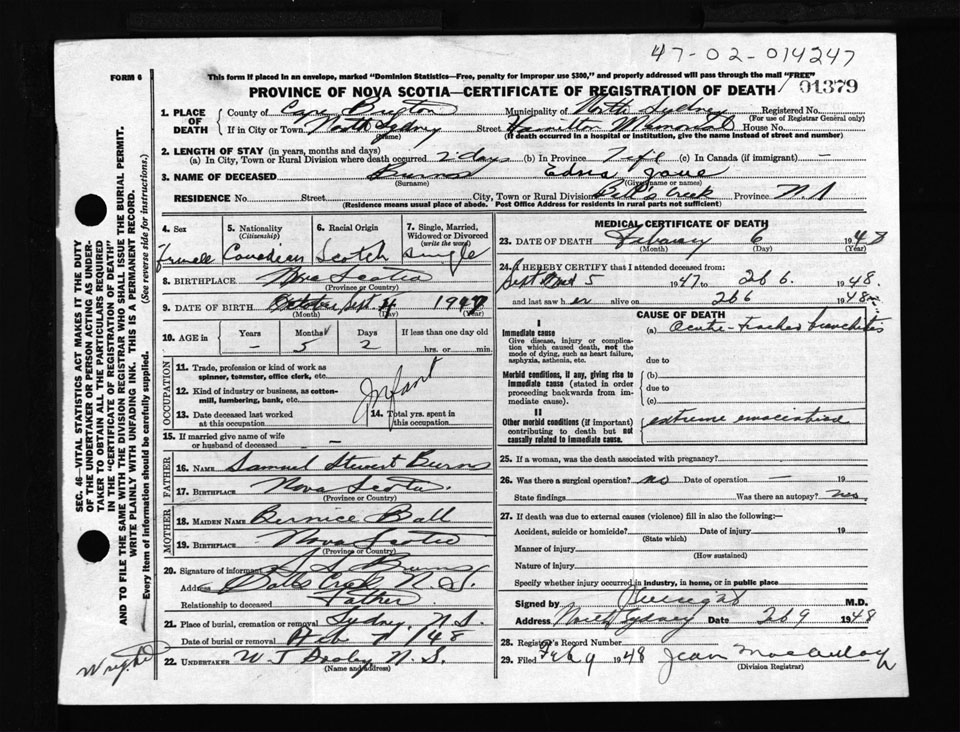 47-02-014247
FORM 6
This form if placed in an envelope, marked "Dominion Statistics—Free, penalty for improper use $300," and properly addressed will pass through the mail "FREE"
PROVINCE OF NOVA SCOTIA—CERTIFICATE OF REGISTRATION OF DEATH
01379
1. PLACE OF DEATH
County of Cape Breton Municipality of North Sydney Registered No.
(For use of Registrar General only)
If in City or Town North Sydney Street Hamilton Memorial House No.
(Name) (If death occurred in a hospital or institution, give the name instead of street and number)
2. LENGTH OF STAY (in years, months and days)
(a) In City, Town or Rural Division where death occurred 2 days (b) In Province Life (c) In Canada (if immigrant) —
3. NAME OF DECEASED Burns Edna Jane
(Surname) (Given name or names)
RESIDENCE No. Street City, Town or Rural Division Creek Province N.S
(Residence means usual place of abode. Post Office Address for residents in rural parts not sufficient)
4. Sex
5. Nationality
(Citizenship)
6. Racial Origin
7. Single, Married, Widowed or Divorced
(write the word)
Female Canadian Scotch Single
8. BIRTHPLACE Nova Scotia
(Province or Country)
9. DATE OF BIRTH October Sept. 4 1947
(Month) (Day)
10. AGE in
Years Months Days If less than one day old
— 5 2 hrs. or min.
OCCUPATION
11. Trade, profession or kind of work as spinner, teamster, office clerk, etc.
12. Kind of industry or business, as cotton-mill, lumbering, bank, etc.
Infant
13. Date deceased last worked at this occupation
14. Total yrs. spent in this occupation
15. If married give name of wife or husband of deceased —
FATHER
16. NAME Samuel Stewart Burns
17. BIRTHPLACE Nova Scotia
(Province or Country)
MOTHER
18. MAIDEN NAME Bernice Ball
19. BIRTHPLACE Nova Scotia
(Province or Country)
20. Signature of informant S. S. Burns
Address Balls Creek N.S.
Relationship to deceased Father
21. Place of burial, cremation or removal Sydney, N.S.
Date of burial or removal Feb 7/48
22. UNDERTAKER W. J. N.S.
(Name and address)
MEDICAL CERTIFICATE OF DEATH
23. DATE OF DEATH February 6 1948
(Month) (Day) (Year)
24. I HEREBY CERTIFY that I attended deceased from:
Sept 5 1947 to 2 6 6. 1948.
and last saw her alive on 2 6 6 1948
CAUSE OF DEATH
I
Immediate cause
Give disease, injury or complication which caused death, not the mode of dying, such as heart failure, asphyxia, asthenia, etc.
(a) Acute bronchitis
due to
Morbid conditions, if any, giving rise to immediate cause (stated in order proceeding backwards from immediate cause)
(b)
due to
(c)
II
Other morbid conditions (if important) contributing to death but not causally related to immediate cause.
extreme emaciation
25. If a woman, was the death associated with pregnancy?
26. Was there a surgical operation? no Date of operation — 19
State findings Was there an autopsy?
27. If death was due to external causes (violence) fill in also the following:—
Accident, suicide or homicide? Date of injury 19
(State which)
Manner of injury
(How sustained)
Nature of injury
Specify whether injury occurred in industry, in home, or in public place
Signed by M.D.
Address North Sydney Date 2 6 9 1948
28. Registrar's Record Number
29. Filed Feb 9 1948 Jean MacAulay
(Division Registrar)
SEC. 46—VITAL STATISTICS ACT MAKES IT THE DUTY
OF THE UNDERTAKER OR PERSON ACTING AS UNDER-
TAKER TO OBTAIN ALL THE PARTICULARS REQUIRED
IN THE "CERTIFICATE OF REGISTRATION OF DEATH"
AND TO FILE THE SAME WITH THE DIVISION REGISTRAR WHO SHALL ISSUE THE BURIAL PERMIT.
WRITE PLAINLY WITH UNFADING INK. THIS IS A PERMANENT RECORD.
Every item of information should be carefully supplied. (See reverse side for instructions.)